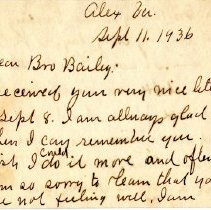 Alex Va.
Sept 11. 1936
ear Bro Bailey:
eceived your very nice lette
Sept 8. I am allways glad
hen I can remember you.
ish I could do it more and ofte
m so sorry to learn that yo
e not feeling well, I am